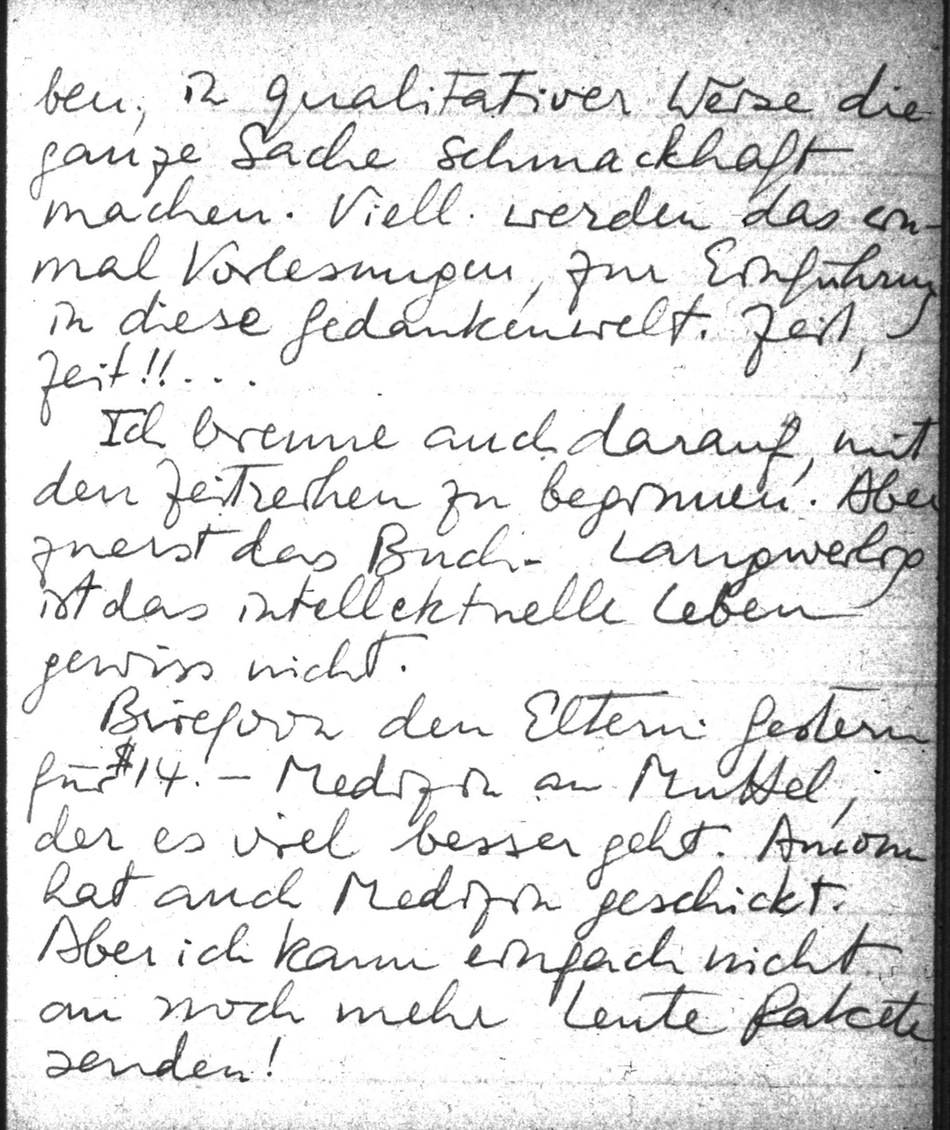 ben, in qualitativer Weise die
ganze Sache schmackhaft
machen. Viell. werden das ein-
mal Vorlesungen, zur Einführung
in diese Gedankenwelt. Zeit,
Zeit!! ...
Ich brenne auch darauf, mit
den Zeitreihen zu beginnen. Aber
zuerst das Buch. Langweilig
ist das intellektuelle Leben
gewiss nicht.
Brief von den Eltern. Gestern
für $14.- Medizin an Muttel,
der es viel besser geht.
hat auch Medizin geschickt.
Aber ich kann einfach nicht
an noch mehr Leute Pakete
senden!